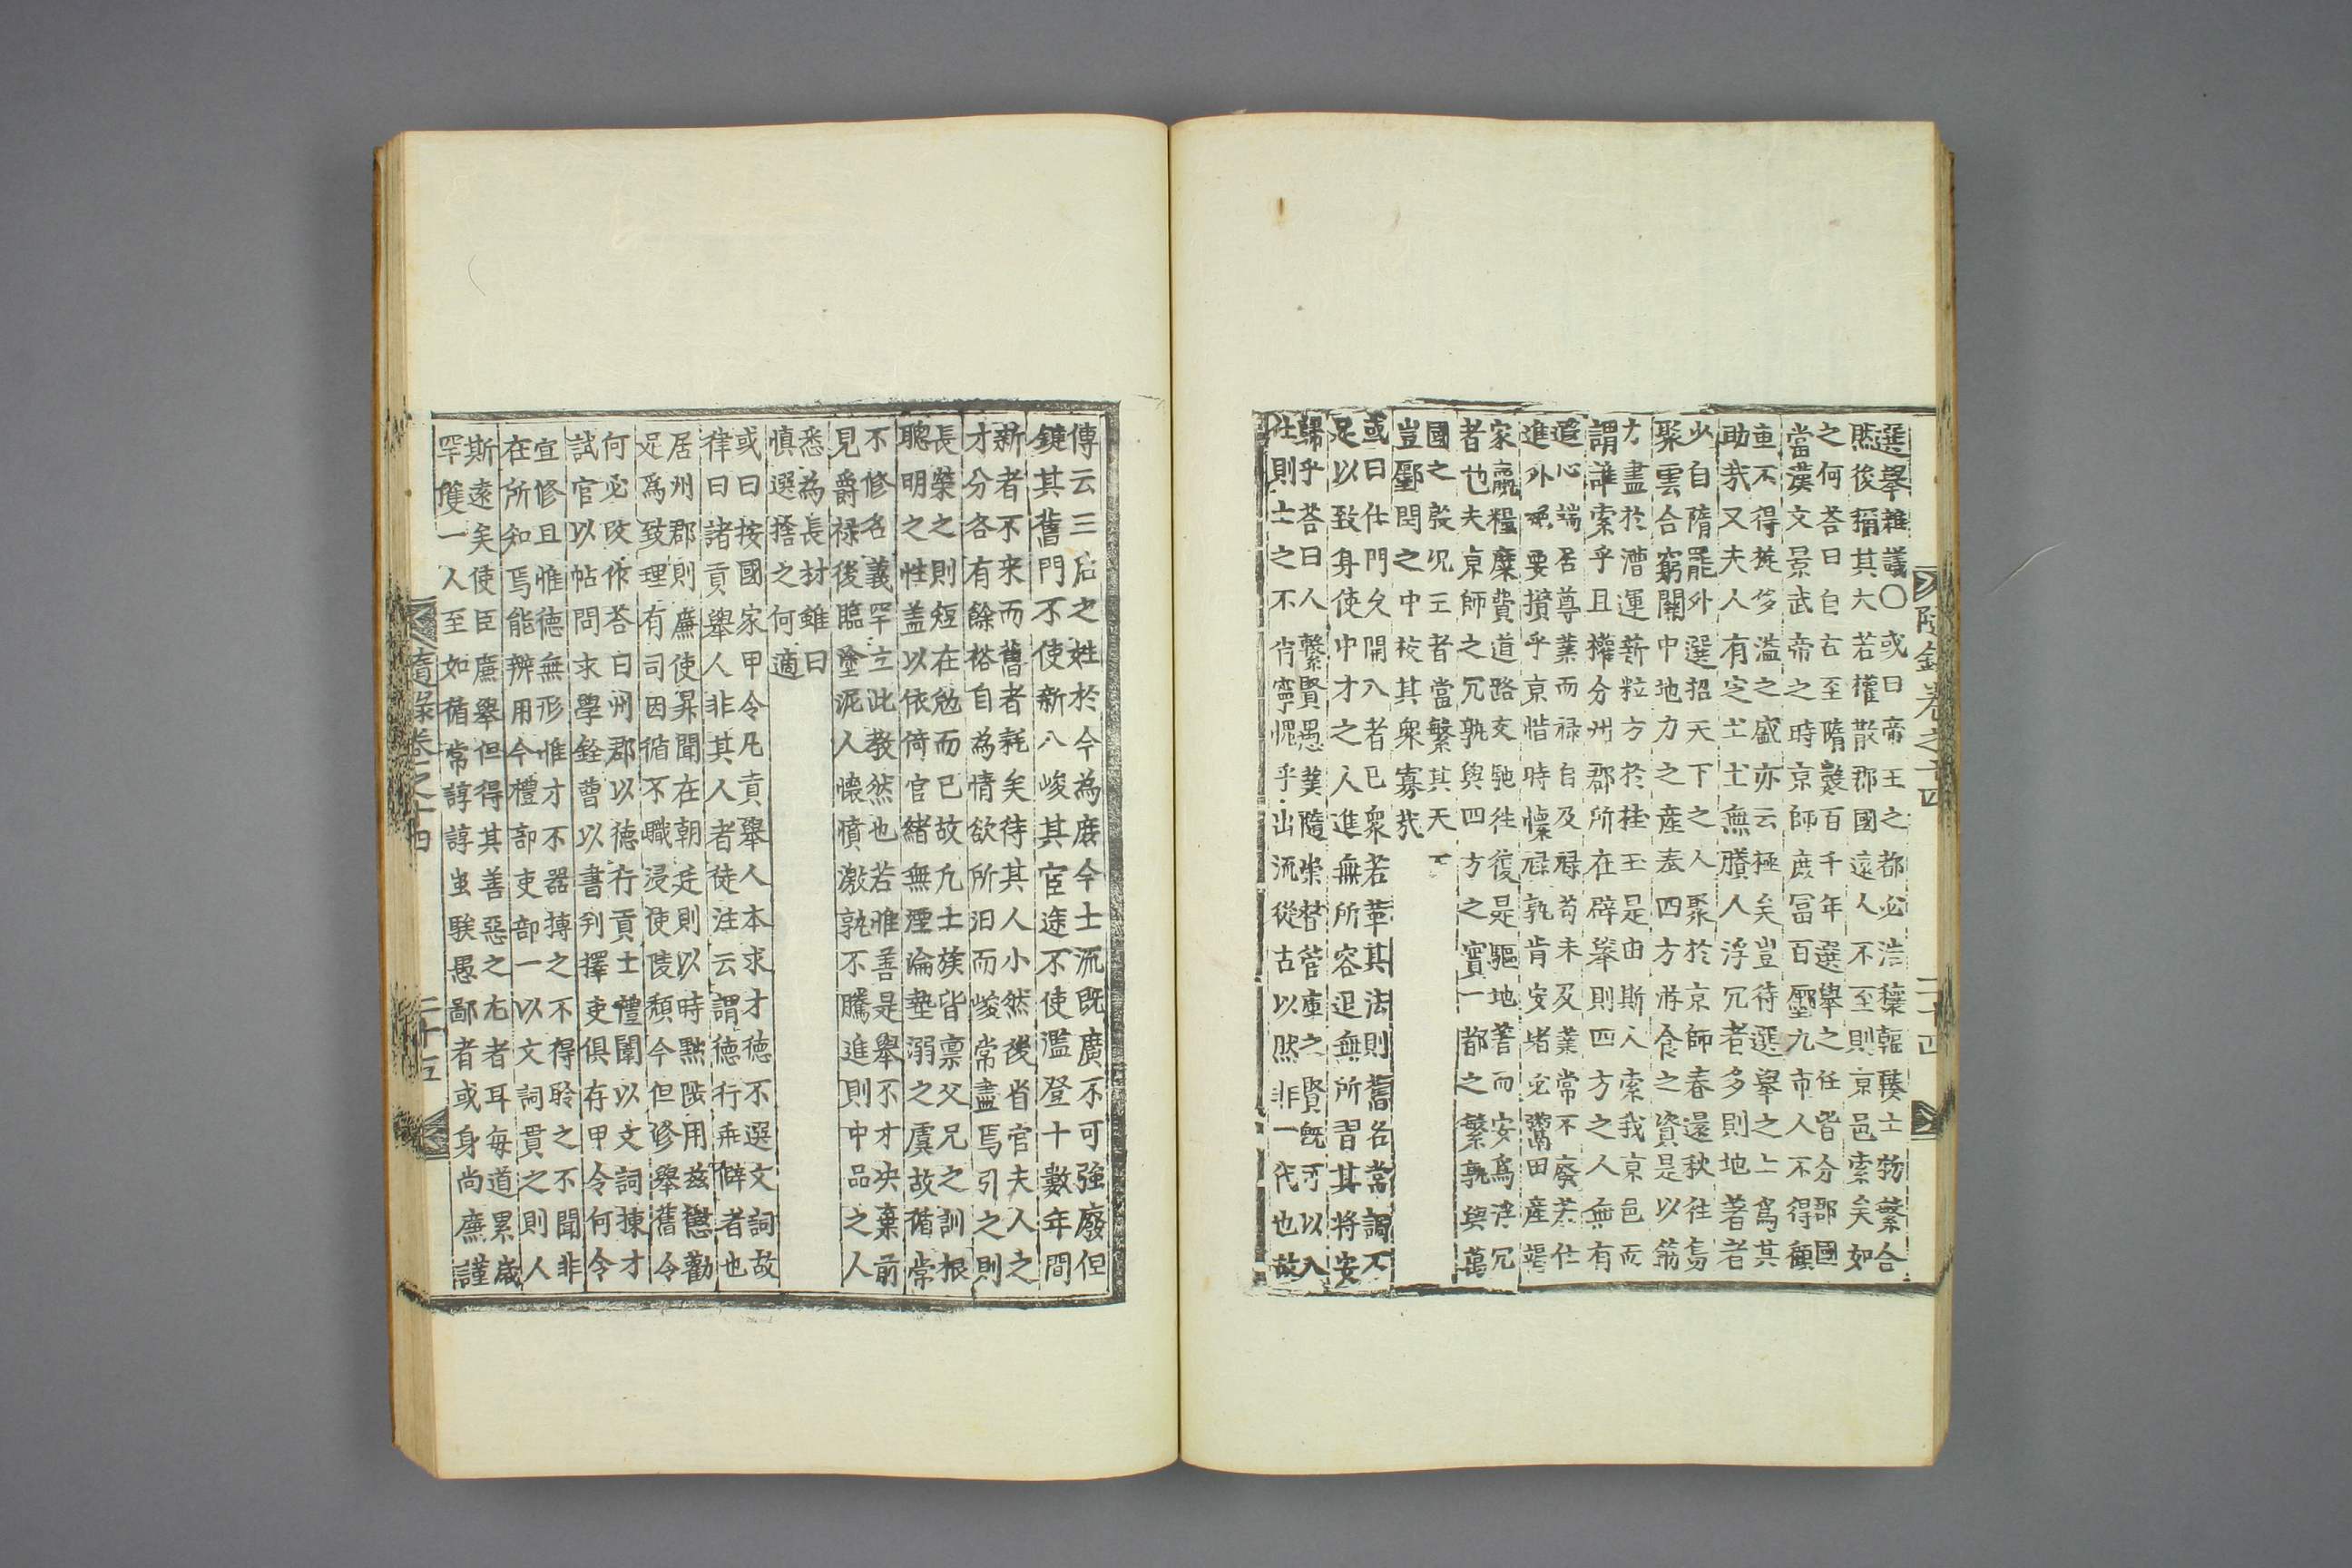 選舉雜議○或曰帝王之都必浩穰輻湊士物繁合
然後稱其大若權散郡國遠人不至則京邑索矣如
之何答曰自古至隋數百千年選舉之任皆分郡國
當漢文景武帝之時京師庶冨百廛九市人不得顧
車不得旋侈溢之盛亦云極矣豈待選舉之士爲其
助㢤又夫人有定土土無賸人浮冗者多則地著者
少自隋罷外選招天下之人聚於京師春還秋往烏
聚雲合窮關中地力之產奉四方游食之資是以筋
力盡於漕運薪粒方於桂玉是由斯人索我京邑而
謂誰索乎且權分州郡所在辟舉則四方之人無有
遐心端居尊業而禄自及禄苟未及業常不廢若仕
進外絕要攢乎京惜時懷禄孰肯安堵必鬻田產竭
家贏糧糜費道路交馳往復是驅地著而安爲浮冗
者也夫京師之冗孰與四方之實一都之繁孰與萬
國之殷况王者當繁其天下
豈廛閈之中校其衆寡哉
或曰仕門久開入者已衆若革其法則舊名常調不
足以致身使中才之人進無所容退無所習其將安
歸乎答曰人繫賢愚業隨崇替管庫之賢旣可以入
仕則士之不肖寧愧乎出流從古以然非一代也故
隨錄卷之十四
二十四
傳云三后之姓於今為庶今士流旣廣不可強廢但
鍵其舊門不使新入峻其宦途不使濫登十數年間
新者不来而舊者耗矣待其人小然後省官夫人之
才分各有餘裕自為情欲所汨而峻常盡焉引之則
長縶之則短在勉而已故凡士族皆禀父兄之訓根
聰明之性盖以依倚官緒無湮淪墊溺之虞故循常
不修名義罕立此教然也若惟善是舉不才决棄前
見爵祿後臨塗泥人懷憤激孰不騰進則中品之人
悉為長材雖曰
慎選捨之何適
或曰按國家甲令凡貢舉人本求才德不選文詞故
律曰諸貢舉人非其人者徒注云謂德行乖僻者也
居州郡則廉使昇聞在朝廷則以時黜陟用兹懲勸
足爲致理有司因循不職浸使陵頹今但修舉舊令
何必改作答曰州郡以德行貢士禮闈以文詞揀才
試官以帖問求學銓曹以書判擇吏俱存甲令何令
宜修且惟德無形惟才不器摶之不得聆之不聞非
在所知焉能辨用今禮部吏部一以文詞貫之則人
斯遠矣使臣廉舉但得其善惡之尤者耳每道累歲
罕獲一人至如循常諄諄蚩騃愚鄙者或身尚廉謹
隨錄卷之十四
二十五